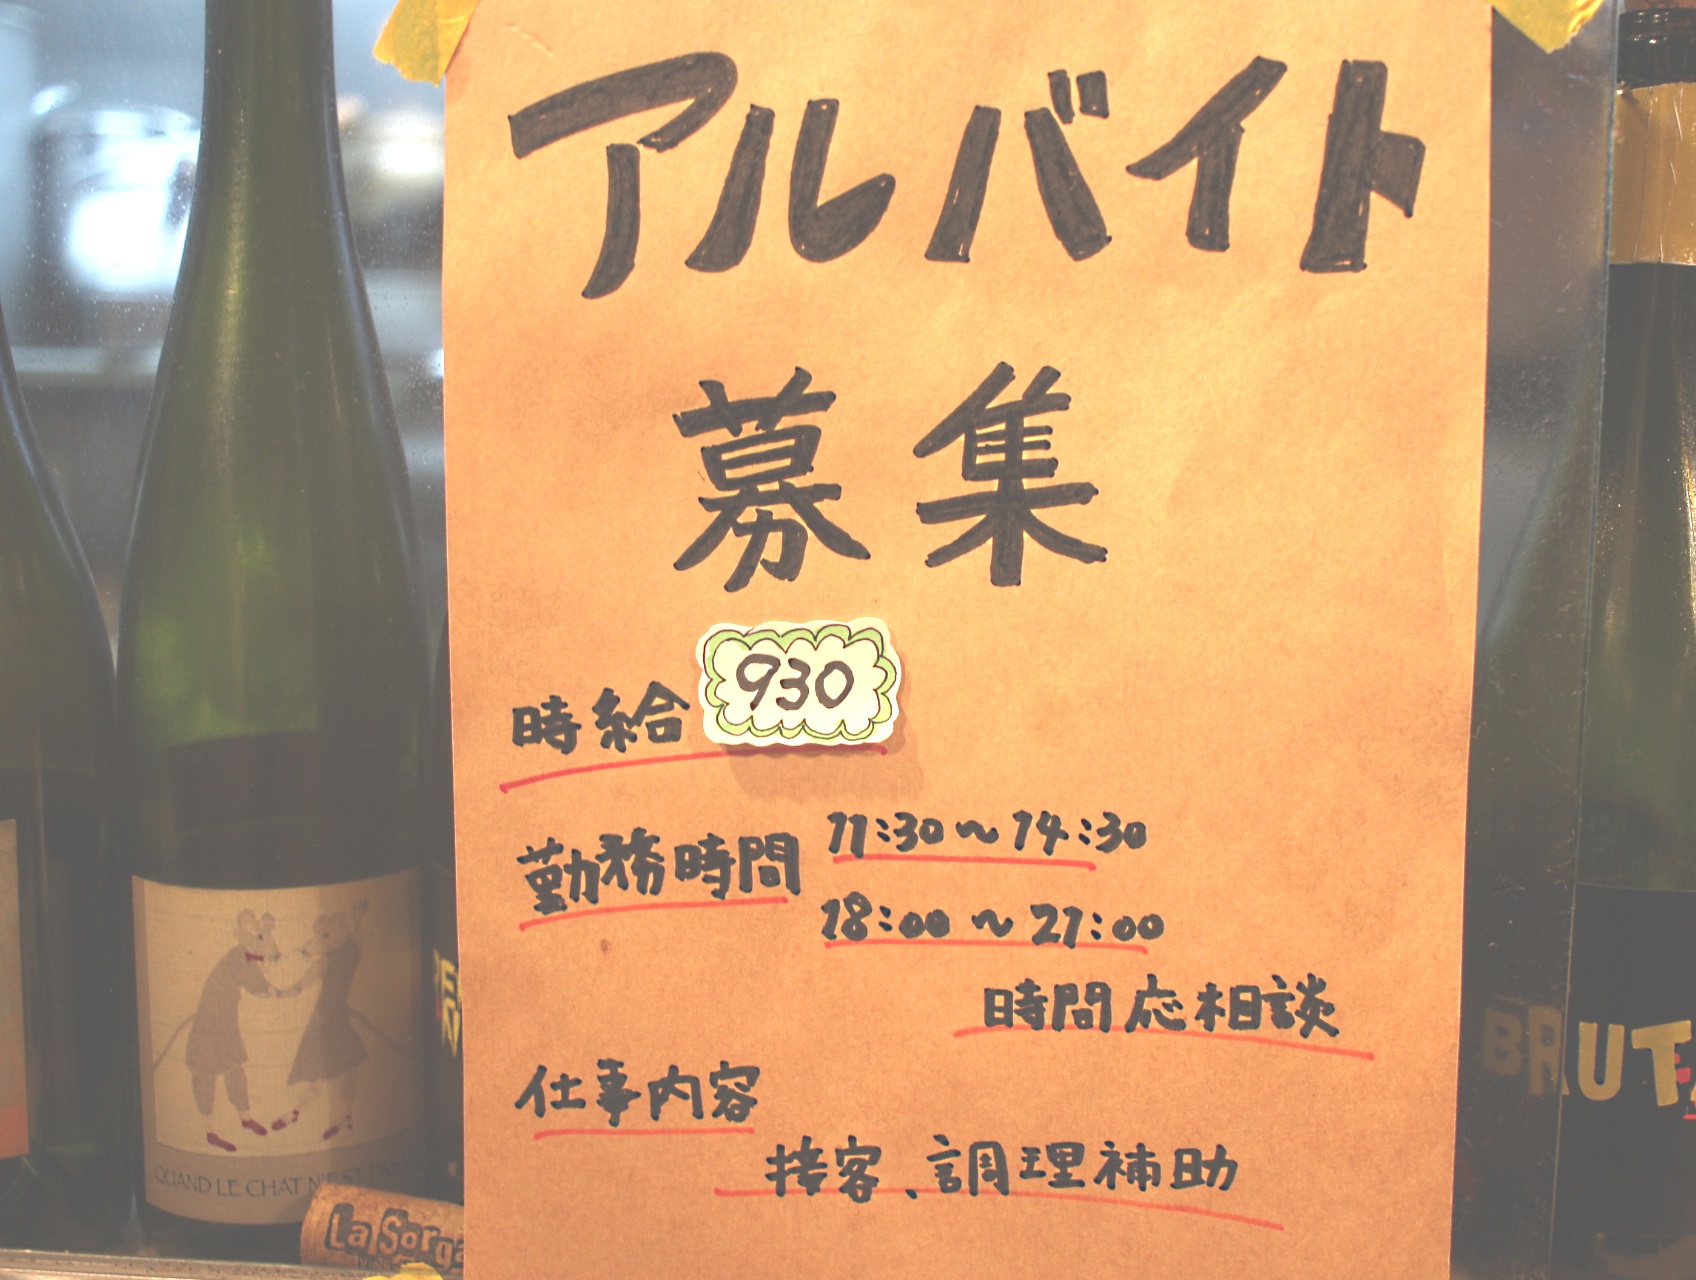 アルバイト
募集
時給 930
勤務時間 11:30〜14:30
18:00〜21:00
時間応相談
仕事内容
接客、調理補助
QUAND LE CHAT N'EST
La Sorga
BRUT